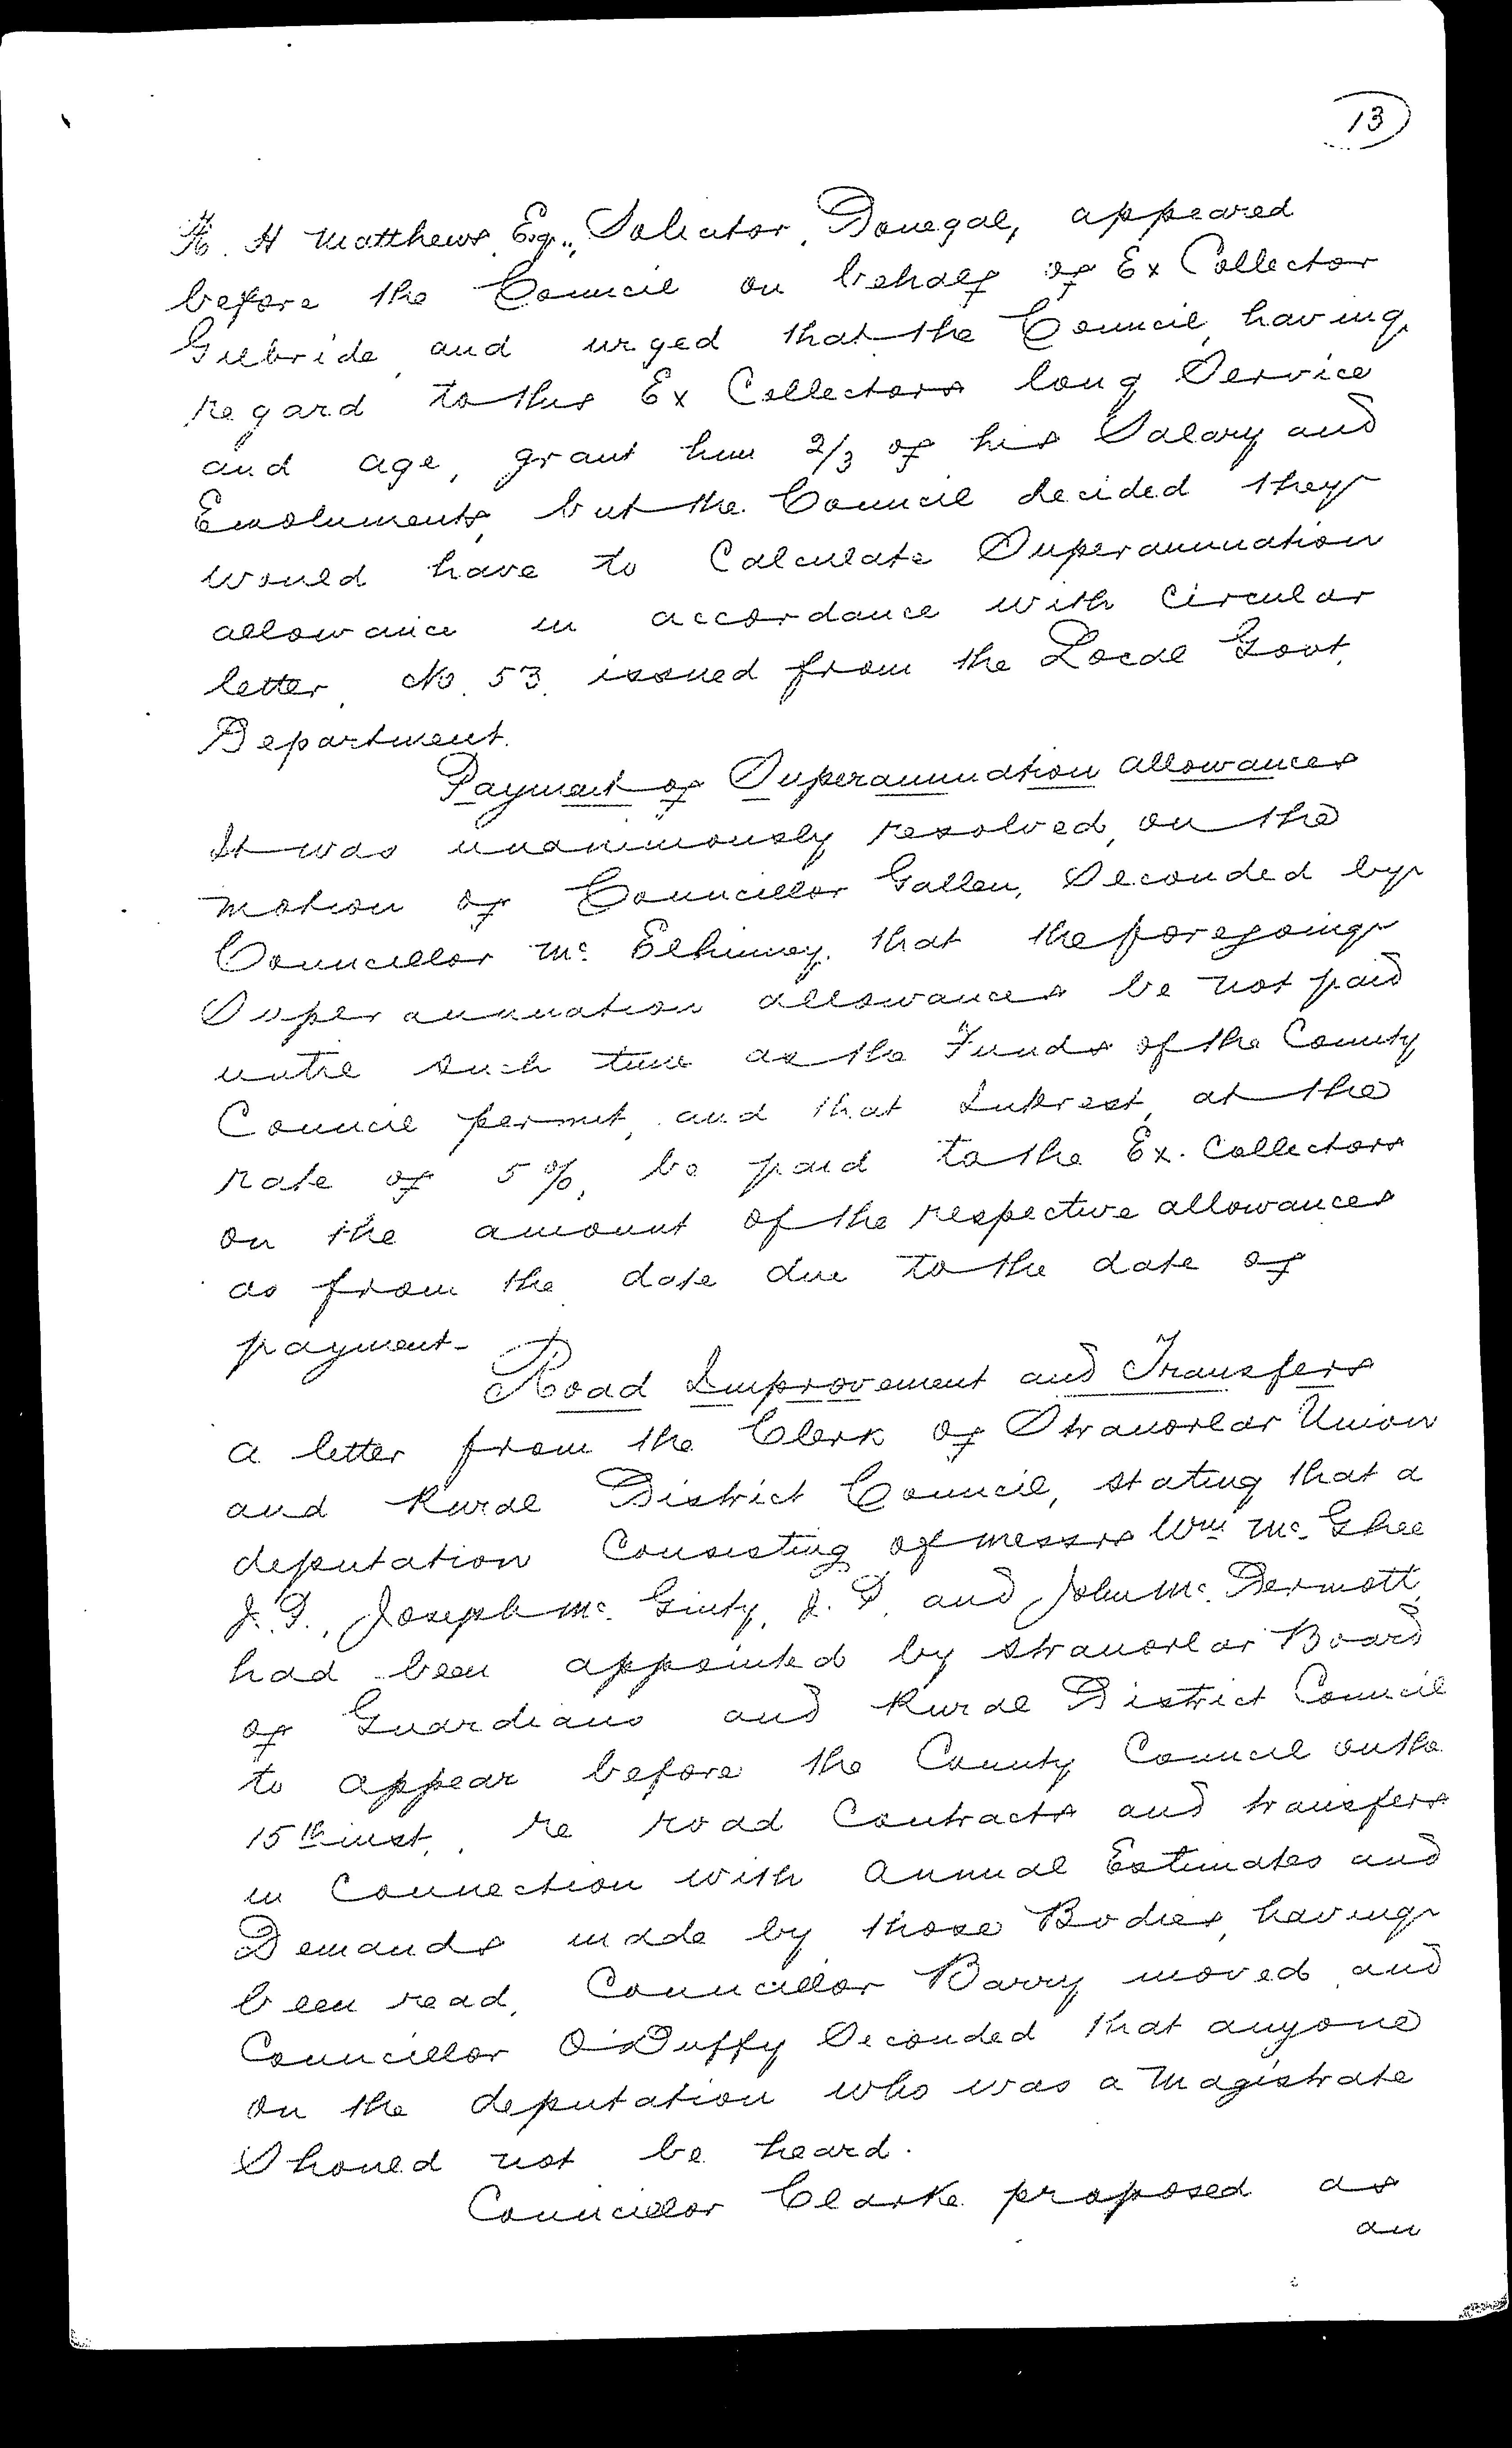 13
H. H Matthews, Esq., Solicitor, Donegal, appeared
before the Council on behalf of Ex Collector
Gilbride, and urged that the Council, having
regard to this Ex Collectors long Service
and age, grant him 2/3 of his Salary and
Emoluments, but the Council decided they
would have to Calculate Superannuation
allowance in accordance with Circular
letter, No. 53, issued from the Local Govt.
Department.
Payment of Superannuation allowances
It was unanimously resolved, on the
motion of Councillor Gallen, Seconded by
Councillor Mc Elhinney, that the foregoing
Superannuation allowances be not paid
until such time as the Funds of the County
Council permit, and that Interest, at the
rate of 5%, be paid to the Ex. Collectors
on the amount of the respective allowances
as from the date due to the date of
payment-
Road Improvement and Transfers
A letter from the Clerk of Stranorlar Union
and Rural District Council, stating that a
deputation Consisting of Messrs Wm Mc. Ghee
J.P., Joseph Mc. Ginty, J.P. and John Mc. Dermott,
had been appointed by Stranorlar Board
of Guardians and Rural District Council
to appear before the County Council on the
15th inst., re road Contracts and transfers
in Connection with Annual Estimates and
Demands made by those Bodies, having
been read, Councillor Barry moved and
Councillor O'Duffy Seconded that anyone
on the deputation who was a Magistrate
Should not be heard.
Councillor Clarke proposed as
an